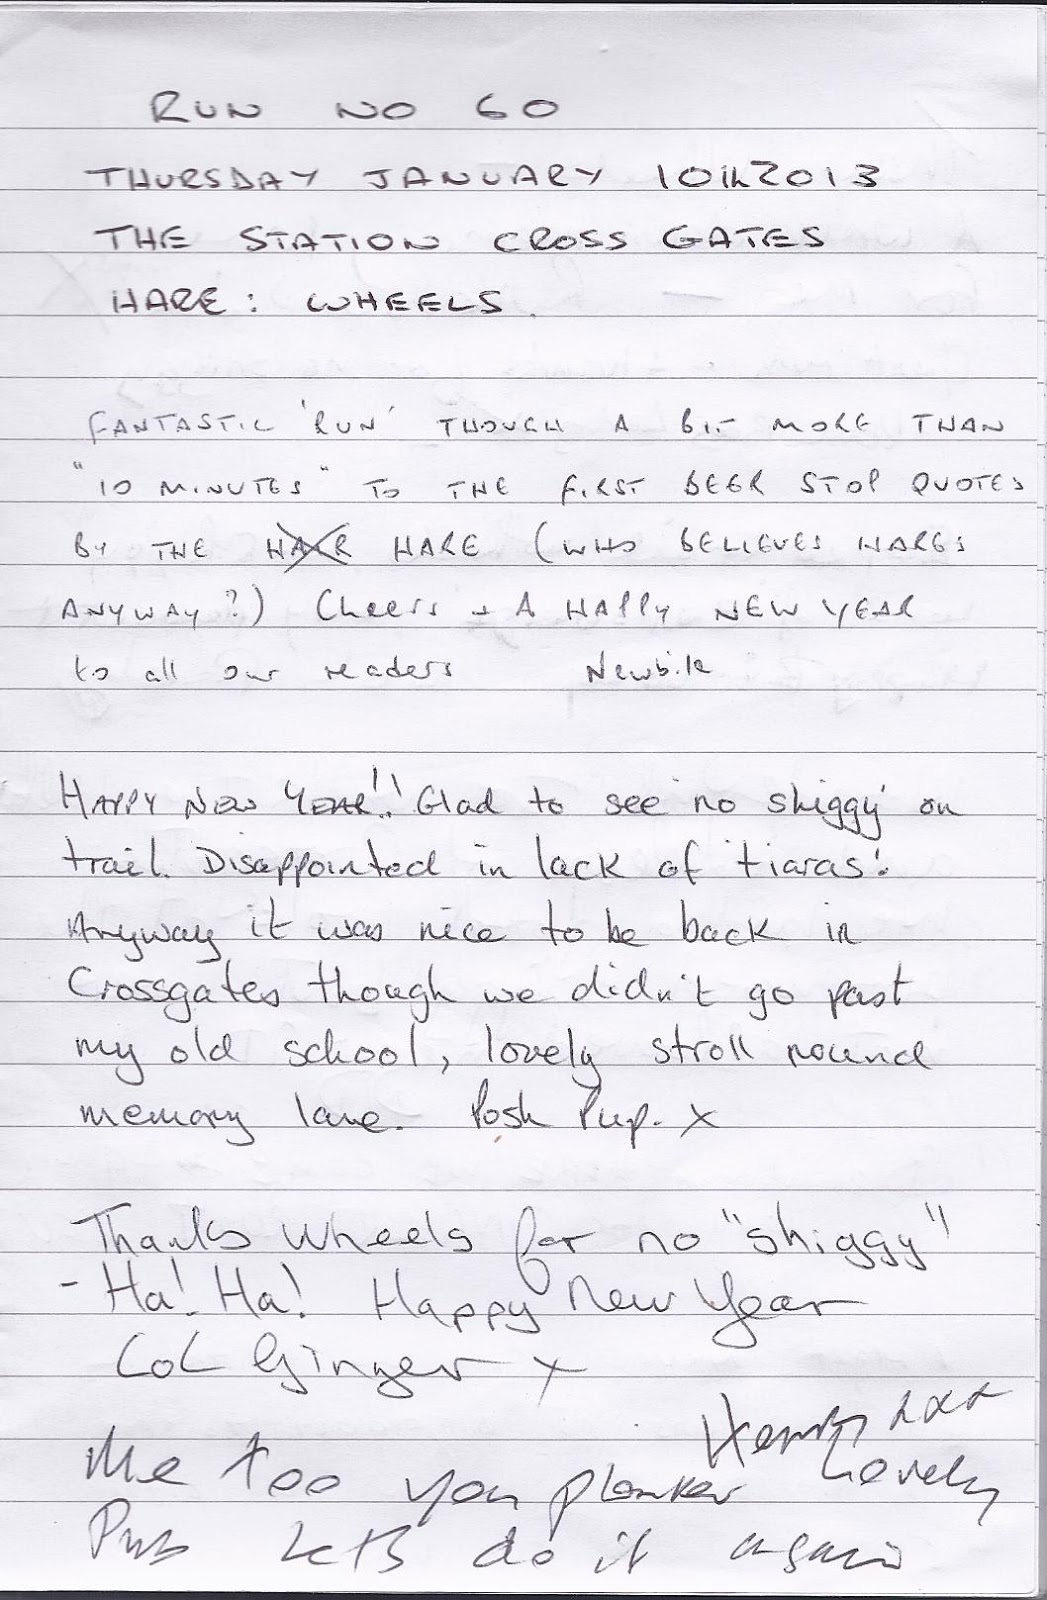 RUN NO 60
THURSDAY JANUARY 10th 2013
THE STATION CROSS GATES
HARE: WHEELS.
FANTASTIC 'RUN' THOUGH A BIT MORE THAN
"10 MINUTES" TO THE FIRST BEER STOP QUOTES
BY THE HARE (WHO BELIEVES HARES
ANYWAY?) Cheers + A HAPPY NEW YEAR
to all our readers Newbik
HAPPY NEW YEAR!! Glad to see no 'shiggy' on
trail. Disappointed in lack of 'tiaras'.
Anyway it was nice to be back in
Crossgates though we didn't go past
my old school, lovely stroll round
memory lane. Posh Pup. X
Thanks Wheels for no "shiggy"
- Ha! Ha! Happy New Year
LoL Ginger X
xxx
Me too you plonker Lovely
Pub Lets do it again